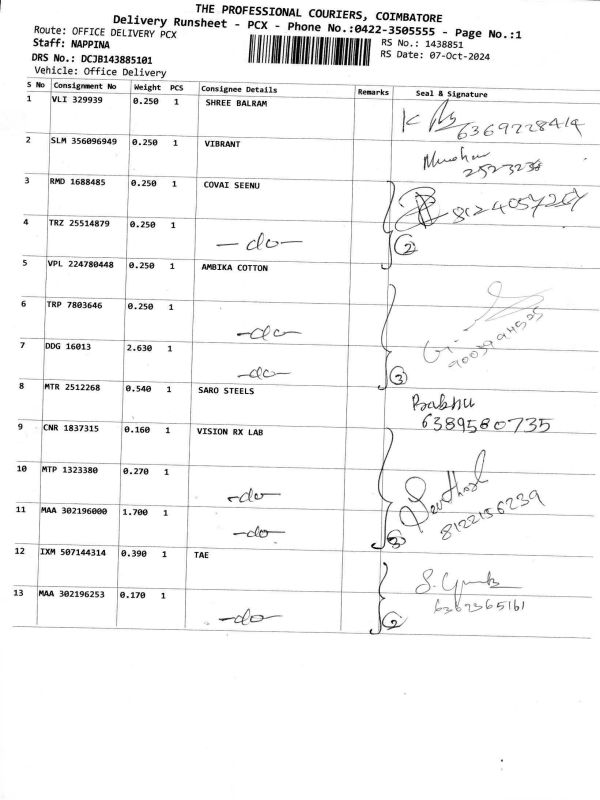 THE PROFESSIONAL COURIERS, COIMBATORE
Delivery Runsheet - PCX - Phone No.:0422-3505555 - Page No.:1
Route: OFFICE DELIVERY PCX
RS No.: 1438851
Staff: NAPPINA
RS Date: 07-Oct-2024
DRS No.: DCJB143885101
Vehicle: Office Delivery
S No Consignment No Weight PCS Consignee Details Remarks Seal & Signature
1 VLI 329939 0.250 1 SHREE BALRAM
6369728414
2 SLM 356096949 0.250 1 VIBRANT
2523238
3 RMD 1688485 0.250 1 COVAI SEENU
8124057267
4 TRZ 25514879 0.250 1
-do- 2
5 VPL 224780448 0.250 1 AMBIKA COTTON
6 TRP 7803646 0.250 1
-do-
9003994595
7 DDG 16013 2.630 1
-do- 3
8 MTR 2512268 0.540 1 SARO STEELS
Babhu
6389580735
9 CNR 1837315 0.160 1 VISION RX LAB
10 MTP 1323380 0.270 1
-do-
11 MAA 302196000 1.700 1
-do- 3
8122156239
12 IXM 507144314 0.390 1 TAE
6362365161
13 MAA 302196253 0.170 1
-do- 2